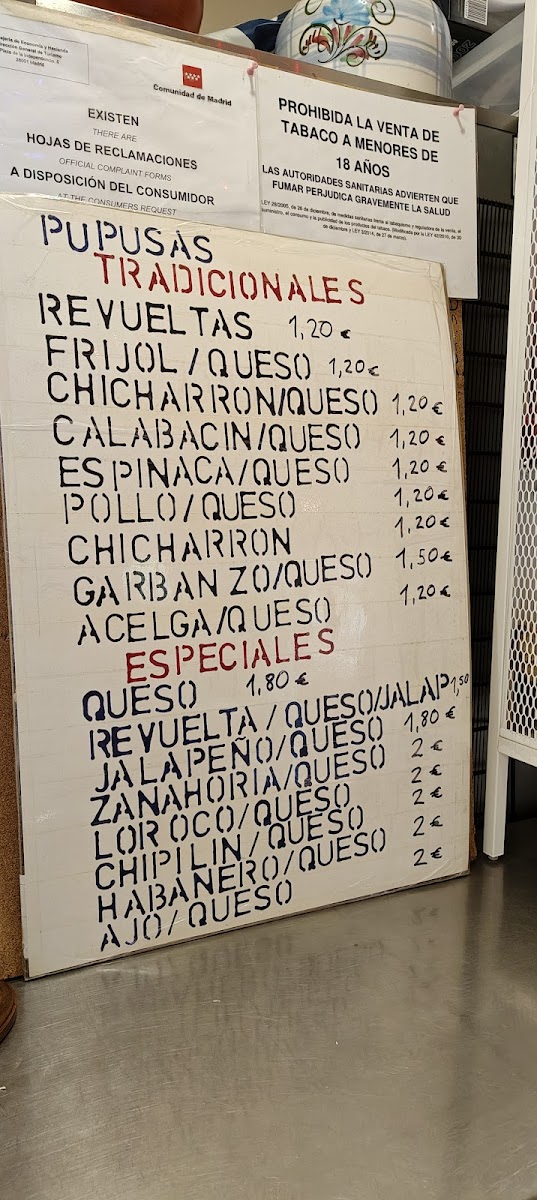 ejería de Economía y Hacienda
Dirección General de Turismo
Plaza de la Independencia, 6
28001 Madrid
Comunidad de Madrid
EXISTEN
THERE ARE
HOJAS DE RECLAMACIONES
OFFICIAL COMPLAINT FORMS
A DISPOSICIÓN DEL CONSUMIDOR
AT THE CONSUMERS REQUEST
PROHIBIDA LA VENTA DE
TABACO A MENORES DE
18 AÑOS
LAS AUTORIDADES SANITARIAS ADVIERTEN QUE
FUMAR PERJUDICA GRAVEMENTE LA SALUD
LEY 28/2005, de 26 de diciembre, de medidas sanitarias frente al tabaquismo y reguladora de la venta, el
suministro, el consumo y la publicidad de los productos del tabaco. (Modificada por la LEY 42/2010, de 30
de diciembre y LEY 3/2014, de 27 de marzo).
PUPUSAS
TRADICIONALES
REVUELTAS 1,20 €
FRIJOL/QUESO 1,20€
CHICHARRON/QUESO 1,20€
CALABACIN/QUESO 1,20€
ESPINACA/QUESO 1,20€
POLLO/QUESO 1,20€
CHICHARRON 1,20€
GARBANZO/QUESO 1,50€
ACELGA/QUESO 1,20€
ESPECIALES
QUESO 1,80€
REVUELTA/QUESO/JALAP 1,50
JALAPEÑO/QUESO 1,80€
ZANAHORIA/QUESO 2€
LOROCO/QUESO 2€
CHIPILIN/QUESO 2€
HABANERO/QUESO 2€
AJO/QUESO 2€